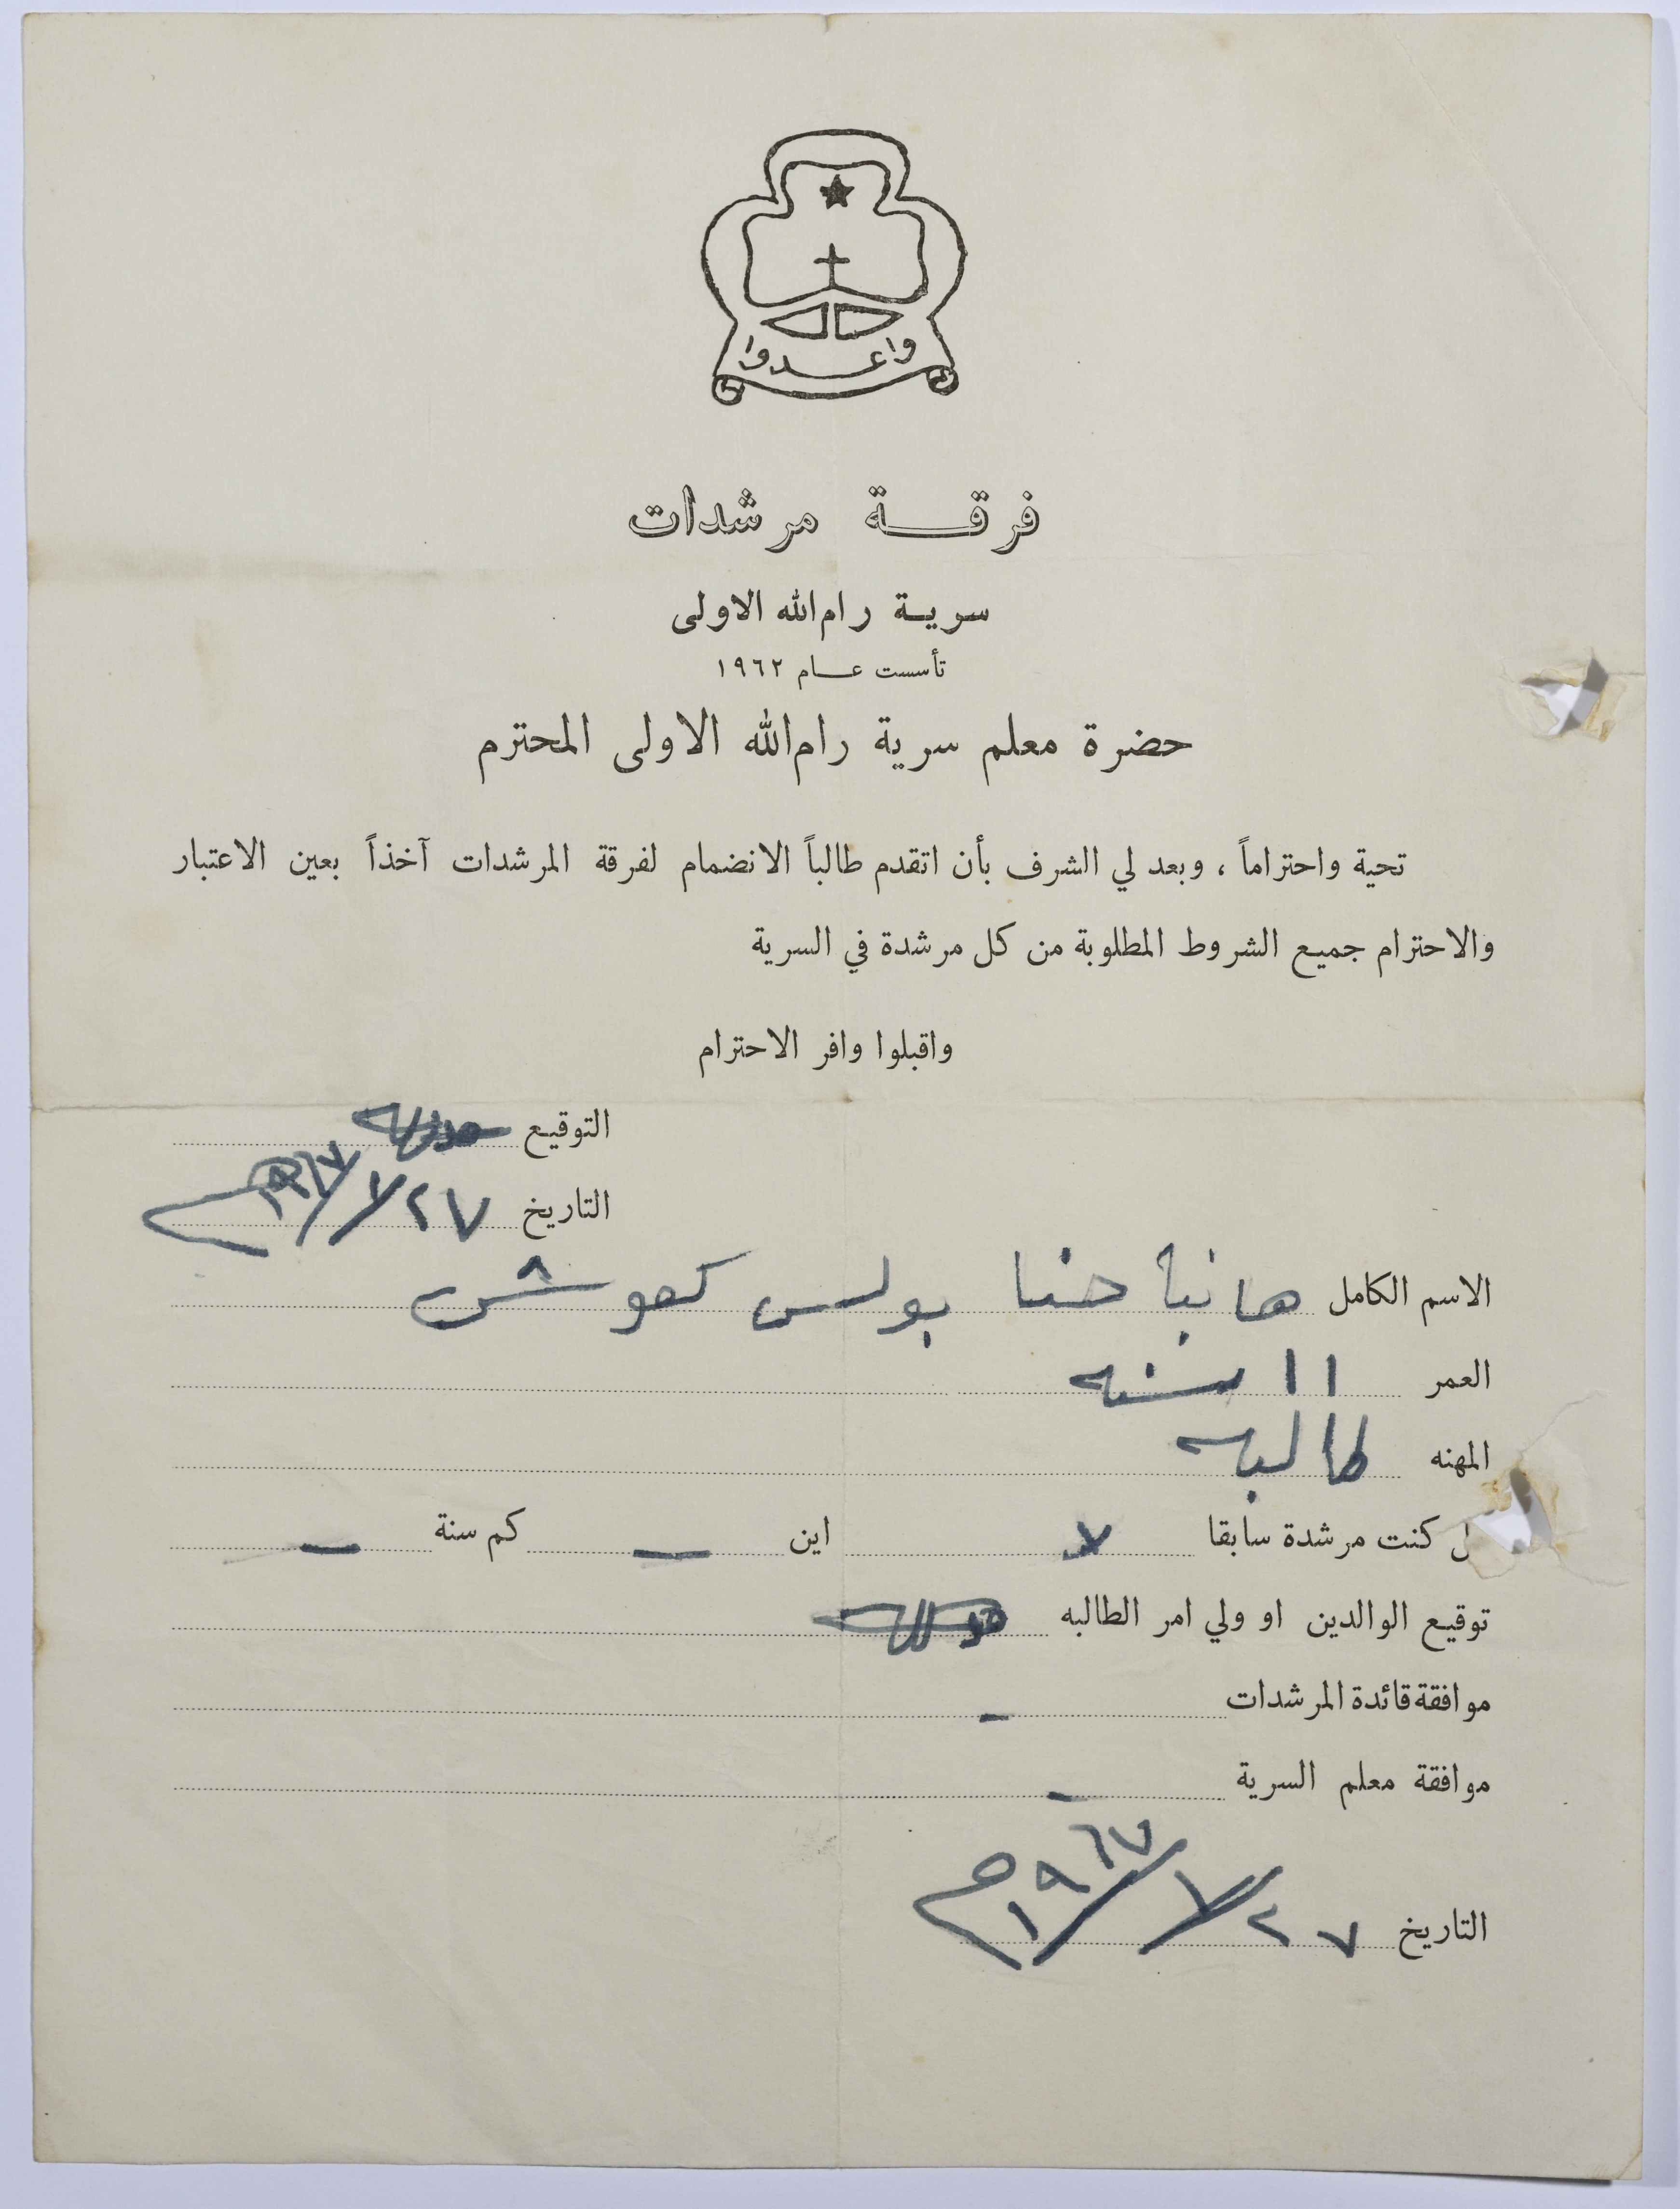 واعدوا
فرقة مرشدات
سرية رام الله الاولى
تأسست عام ١٩٦٢
حضرة معلم سرية رام الله الاولى المحترم
تحية واحتراماً ، وبعد لي الشرف بأن اتقدم طالباً الانضمام لفرقة المرشدات آخذاً بعين الاعتبار
والاحترام جميع الشروط المطلوبة من كل مرشدة في السرية
واقبلوا وافر الاحترام
التوقيع
التاريخ ٢٧/٧/١٩٦٧
الاسم الكامل هانيا حنا بولس كعوش
العمر ١١ سنه
المهنه طالبه
ل كنت مرشدة سابقا لا اين — كم سنة —
توقيع الوالدين او ولي امر الطالبه
موافقة قائدة المرشدات -
موافقة معلم السرية -
التاريخ ٢٧/٧/١٩٦٧